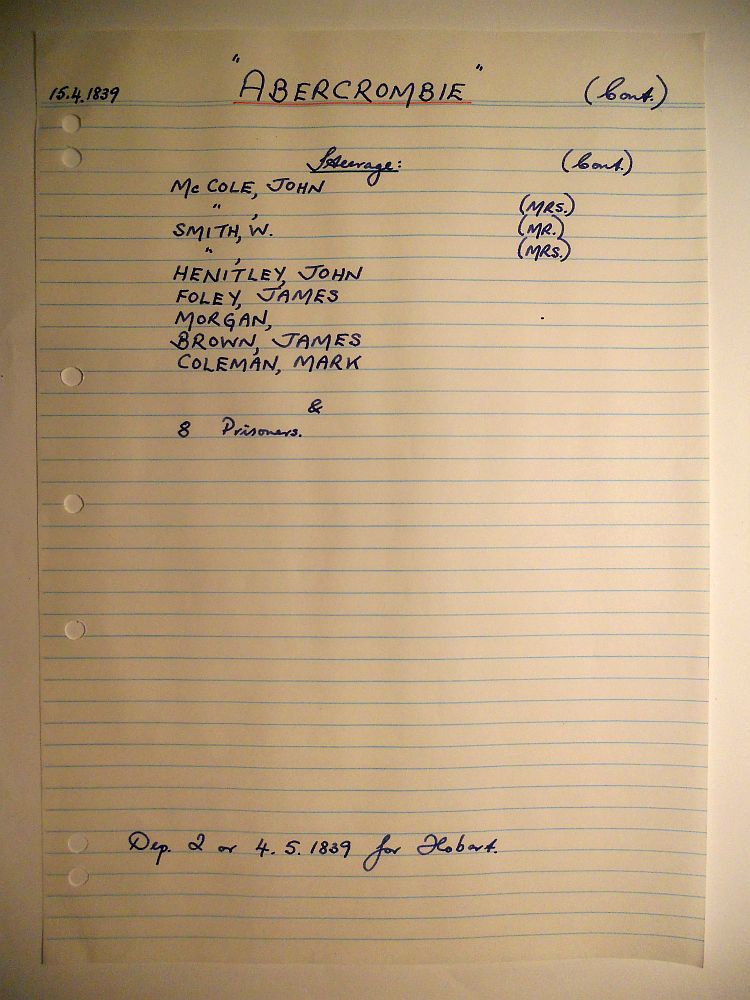 15.4.1839 "ABERCROMBIE" (Cont.)
Steerage: (Cont.)
Mc COLE, JOHN
" , (MRS.)
SMITH, W. (MR.)
" , (MRS.)
HENITLEY, JOHN
FOLEY, JAMES
MORGAN,
BROWN, JAMES
COLEMAN, MARK
&
8 Prisoners.
Dep. 2 or 4.5.1839 for Hobart.